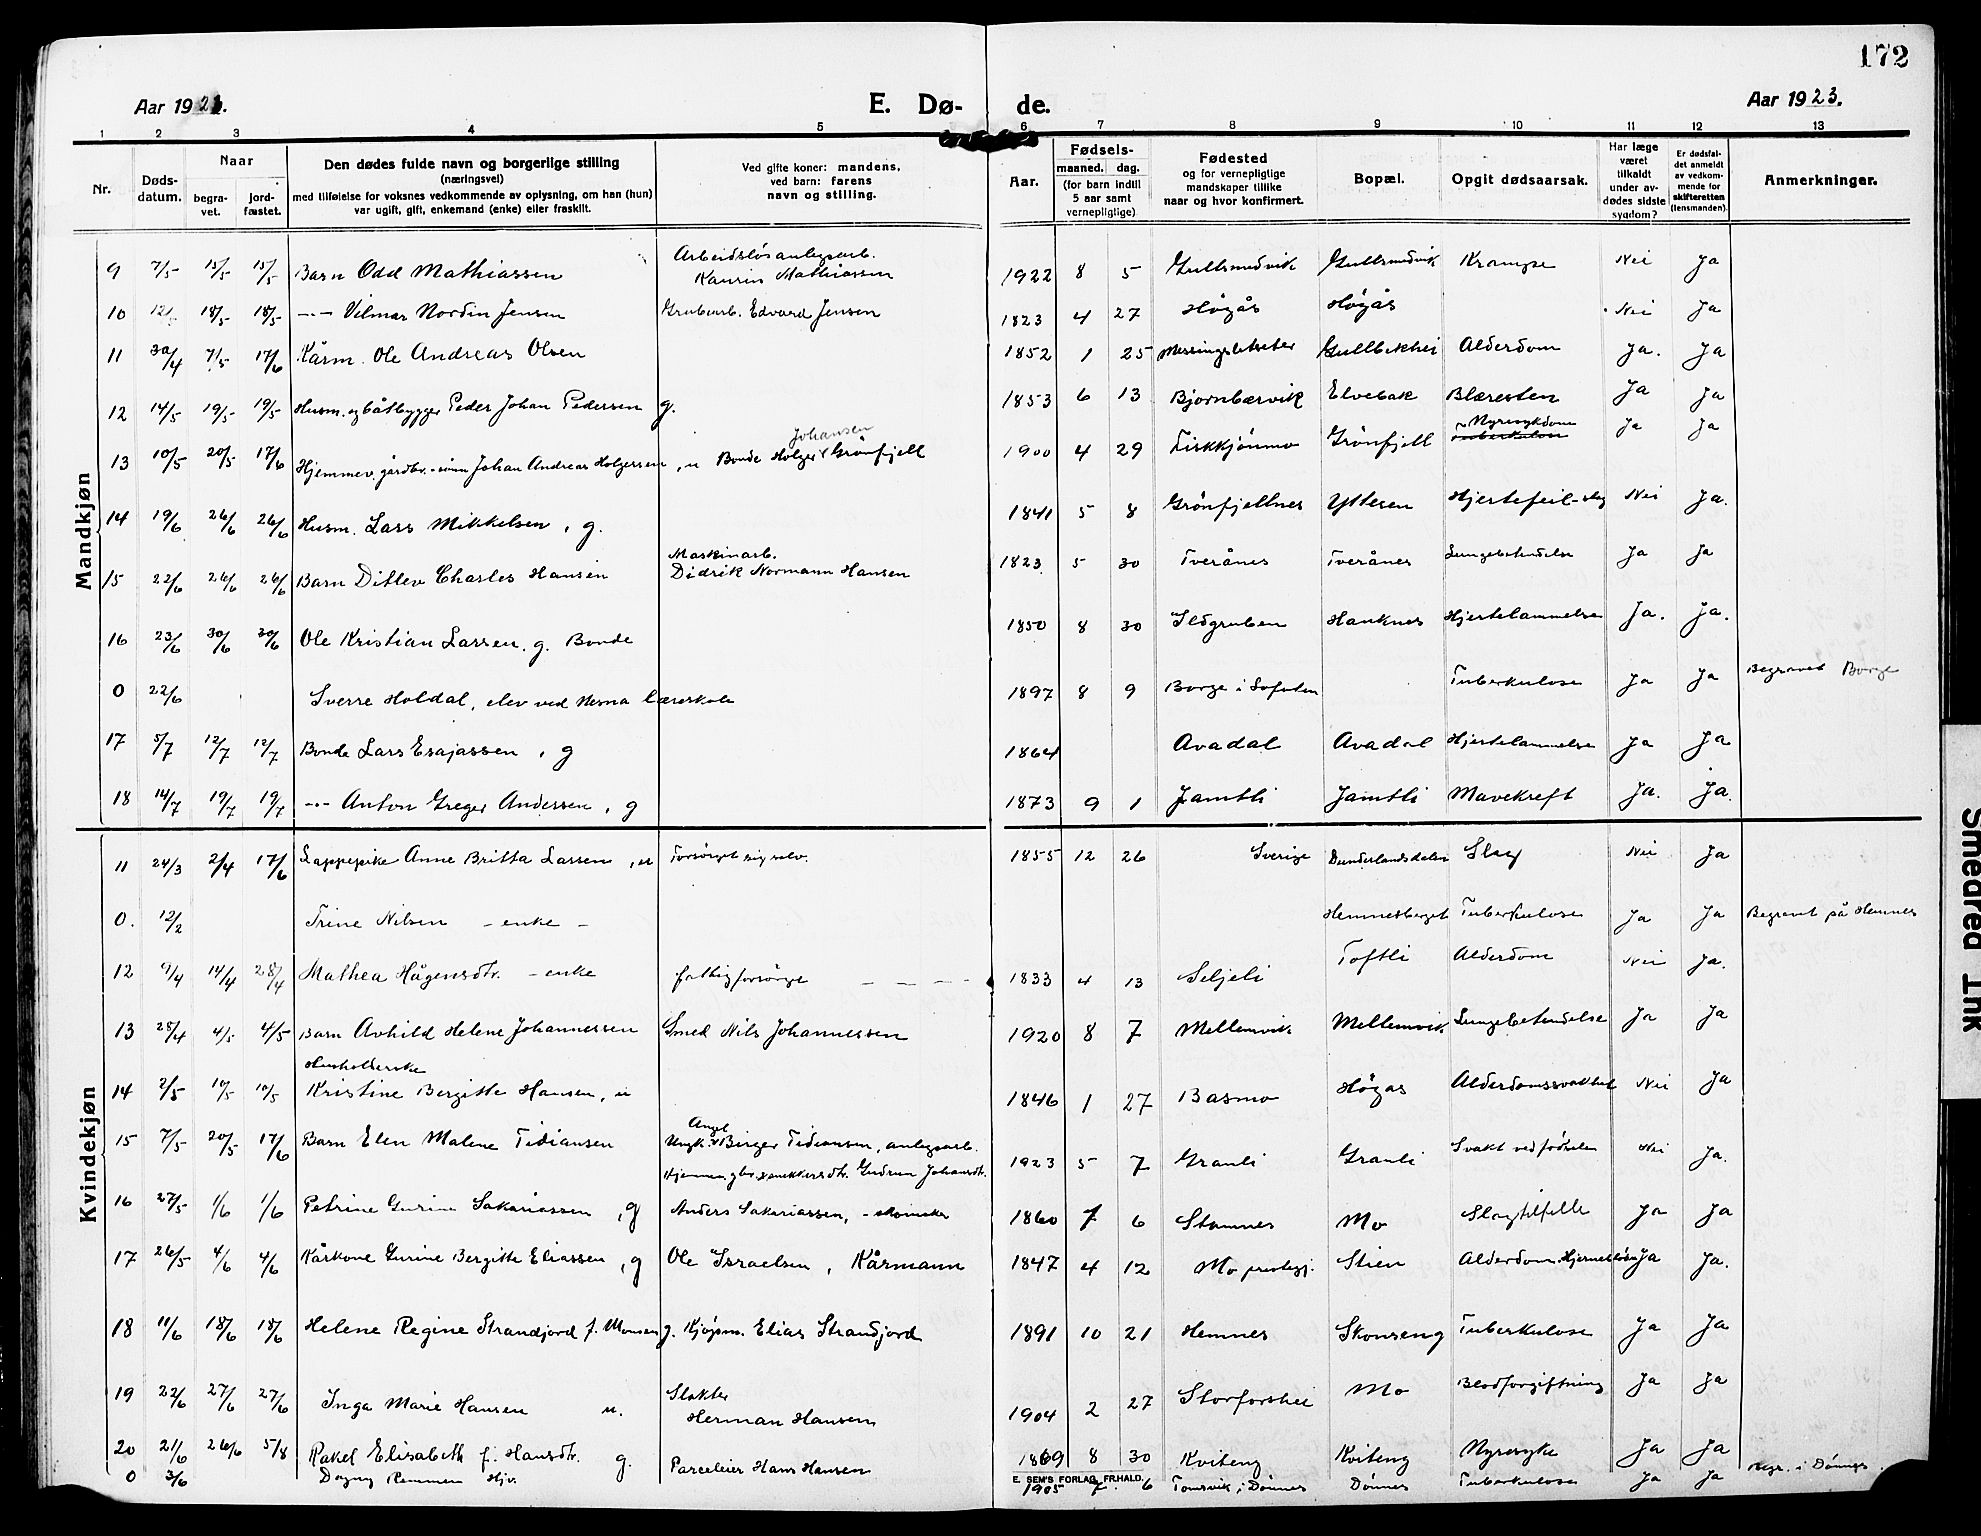 172
Aar 1923.
E. Dø- de.
Aar 1923.
1 2 3 4 5 6 7 8 9 10 11 12 13
Nr.
Døds-
datum.
Naar
begra-
vet.
jord-
fæstet.
Den dødes fulde navn og borgerlige stilling
(næringsvei)
med tilføielse for voksnes vedkommende av oplysning, om han (hun)
var ugift, gift, enkemand (enke) eller fraskilt.
Ved gifte koner: mandens,
ved barn: farens
navn og stilling.
Aar.
Fødsels-
maaned. dag.
(for barn indtil
5 aar samt
vernepligtige)
Fødested
og for vernepligtige
mandskaper tillike
naar og hvor konfirmert.
Bopæl.
Opgit dødsaarsak.
Har læge
været
tilkaldt
under av-
dødes sidste
sygdom?
Er dødsfal-
det anmeldt
av vedkom-
mende for
skifteretten
(lensmanden).
Anmerkninger.
Mandkjøn
9 7/5 15/5 15/5 Barn Odd Mathiassen Arbeidsløs anlegsarb.
Kaurin Mathiassen 1922 8 5 Gullsmedvik Gullsmedvik Krampe Nei Ja
10 12/5 18/5 18/5 -"- Vilmar Nordin Jensen Grubearb. Edvard Jensen 1823 4 27 Høgås Høgås Nei Ja
11 30/4 7/5 17/6 Kårm. Ole Andreas Olsen 1852 1 25 Messingsletseter Gullbekhei Alderdom Ja. Ja
12 14/5 19/5 19/5 Husm. og båtbygger Peder Johan Pedersen g. 1853 6 13 Bjørnbærvik Elvebak Blæresten Ja Ja
13 10/5 20/5 17/6 Hjemmev. gårdbr.-sønn Johan Andreas Holgersen, u Bonde Holger Johansen Grønfjell 1900 4 29 Fiskkjønmo Grønfjell Nyresykdom
tuberkulose Ja Ja
14 19/6 26/6 26/6 Husm. Lars Mikkelsen, g. 1841 5 8 Grønfjellnes Ytteren Hjertefeil-slag Nei Ja.
15 22/6 26/6 26/6 Barn Ditlev Charles Hansen Maskinarb.
Didrik Normann Hansen 1823 5 30 Tverånes Tverånes Lungebetendelse Ja Ja
16 23/6 30/6 30/6 Ole Kristian Larsen. g. Bonde 1850 8 30 Ildgruben Hauknes Hjertelammelse Ja. Ja.
0 22/6 Sverre Holdal, elev ved Nesna læreskole 1897 8 9 Borge i Lofoten Tuberkulose Ja Ja Begravet Borge
17 5/7 12/7 12/7 Bonde Lars Esajassen, g 1864 Avadal Avadal Hjertelammelse Ja Ja
18 14/7 19/7 19/7 -"- Anton Greger Andersen, g 1873 9 1 Jamtli Jamtli Mavekreft Ja. Ja.
Kvindekjøn
11 24/3 2/4 17/6 Lappepike Anne Britta Larsen, u Forsørget sig selv. 1855 12 26 Sverige Dunderlandsdalen Slag Nei Ja
0. 12/2 Trine Nilsen - enke - Hemnesberget Tuberkulose Ja Ja Begravet på Hemnes
12 9/4 14/4 28/4 Mathea Hågensdtr. - enke fattigforsørge 1833 4 13 Seljeli Toftli Alderdom Nei Ja.
13 28/4 4/5 4/5 Barn Avhild Helene Johannessen Smed Nils Johannessen 1920 8 7 Mellemvik Mellemvik Lungebetendelse Ja Ja
14 2/5 10/5 10/5 Husholderske
Kristine Bergitte Hansen, u 1846 1 27 Basmo Høgås Alderdomssvakhet Nei Ja
15 7/5 20/5 17/6 Barn Elen Malene Tidiansen Ungk. Angel Birger Tidiansen, anlegsarb.
Hjemmev. gbr. snekkersdtr. Gudrun Johansdtr. 1923 5 7 Granli Granli Svakt ved fødselen Nei Ja.
16 27/5 1/6 1/6 Petrine Gurine Sakariassen, g Anders Sakariassen, - skomaker 1860 7 6 Stamnes Mo Slagtilfelle Ja Ja
17 26/5 4/6 4/6 Kårkone Gurine Bergitte Eliassen, g Ole Israelsen, Kårmann 1847 4 12 Mo prestegj. Stien Alderdom Ja Ja.
18 11/6 18/6 18/6 Helene Regine Strandjord f. Monsen g. Kjøpm. Elias Strandjord 1891 10 21 Hemnes Skonseng Tuberkulose Ja Ja
19 22/6 27/6 27/6 Inga Marie Hansen u. Slakter
Herman Hansen 1904 2 27 Storforshei Mo Blodforgiftning Ja Ja
20 21/6 26/6 5/8 Rakel Elisabeth f. Hansdtr. g. Parceleier Hans Hansen 1869 8 30 Kviteng Kviteng Nyresyke Ja Ja
E. SEM'S FORLAG, FR.HALD.
0 3/6 Dagny Remmen Hjv. 1905 7. 6 Tomsvik i Dønnes Dønnes Tuberkulose Ja Ja Begr. i Dønnes.
Smeared Ink